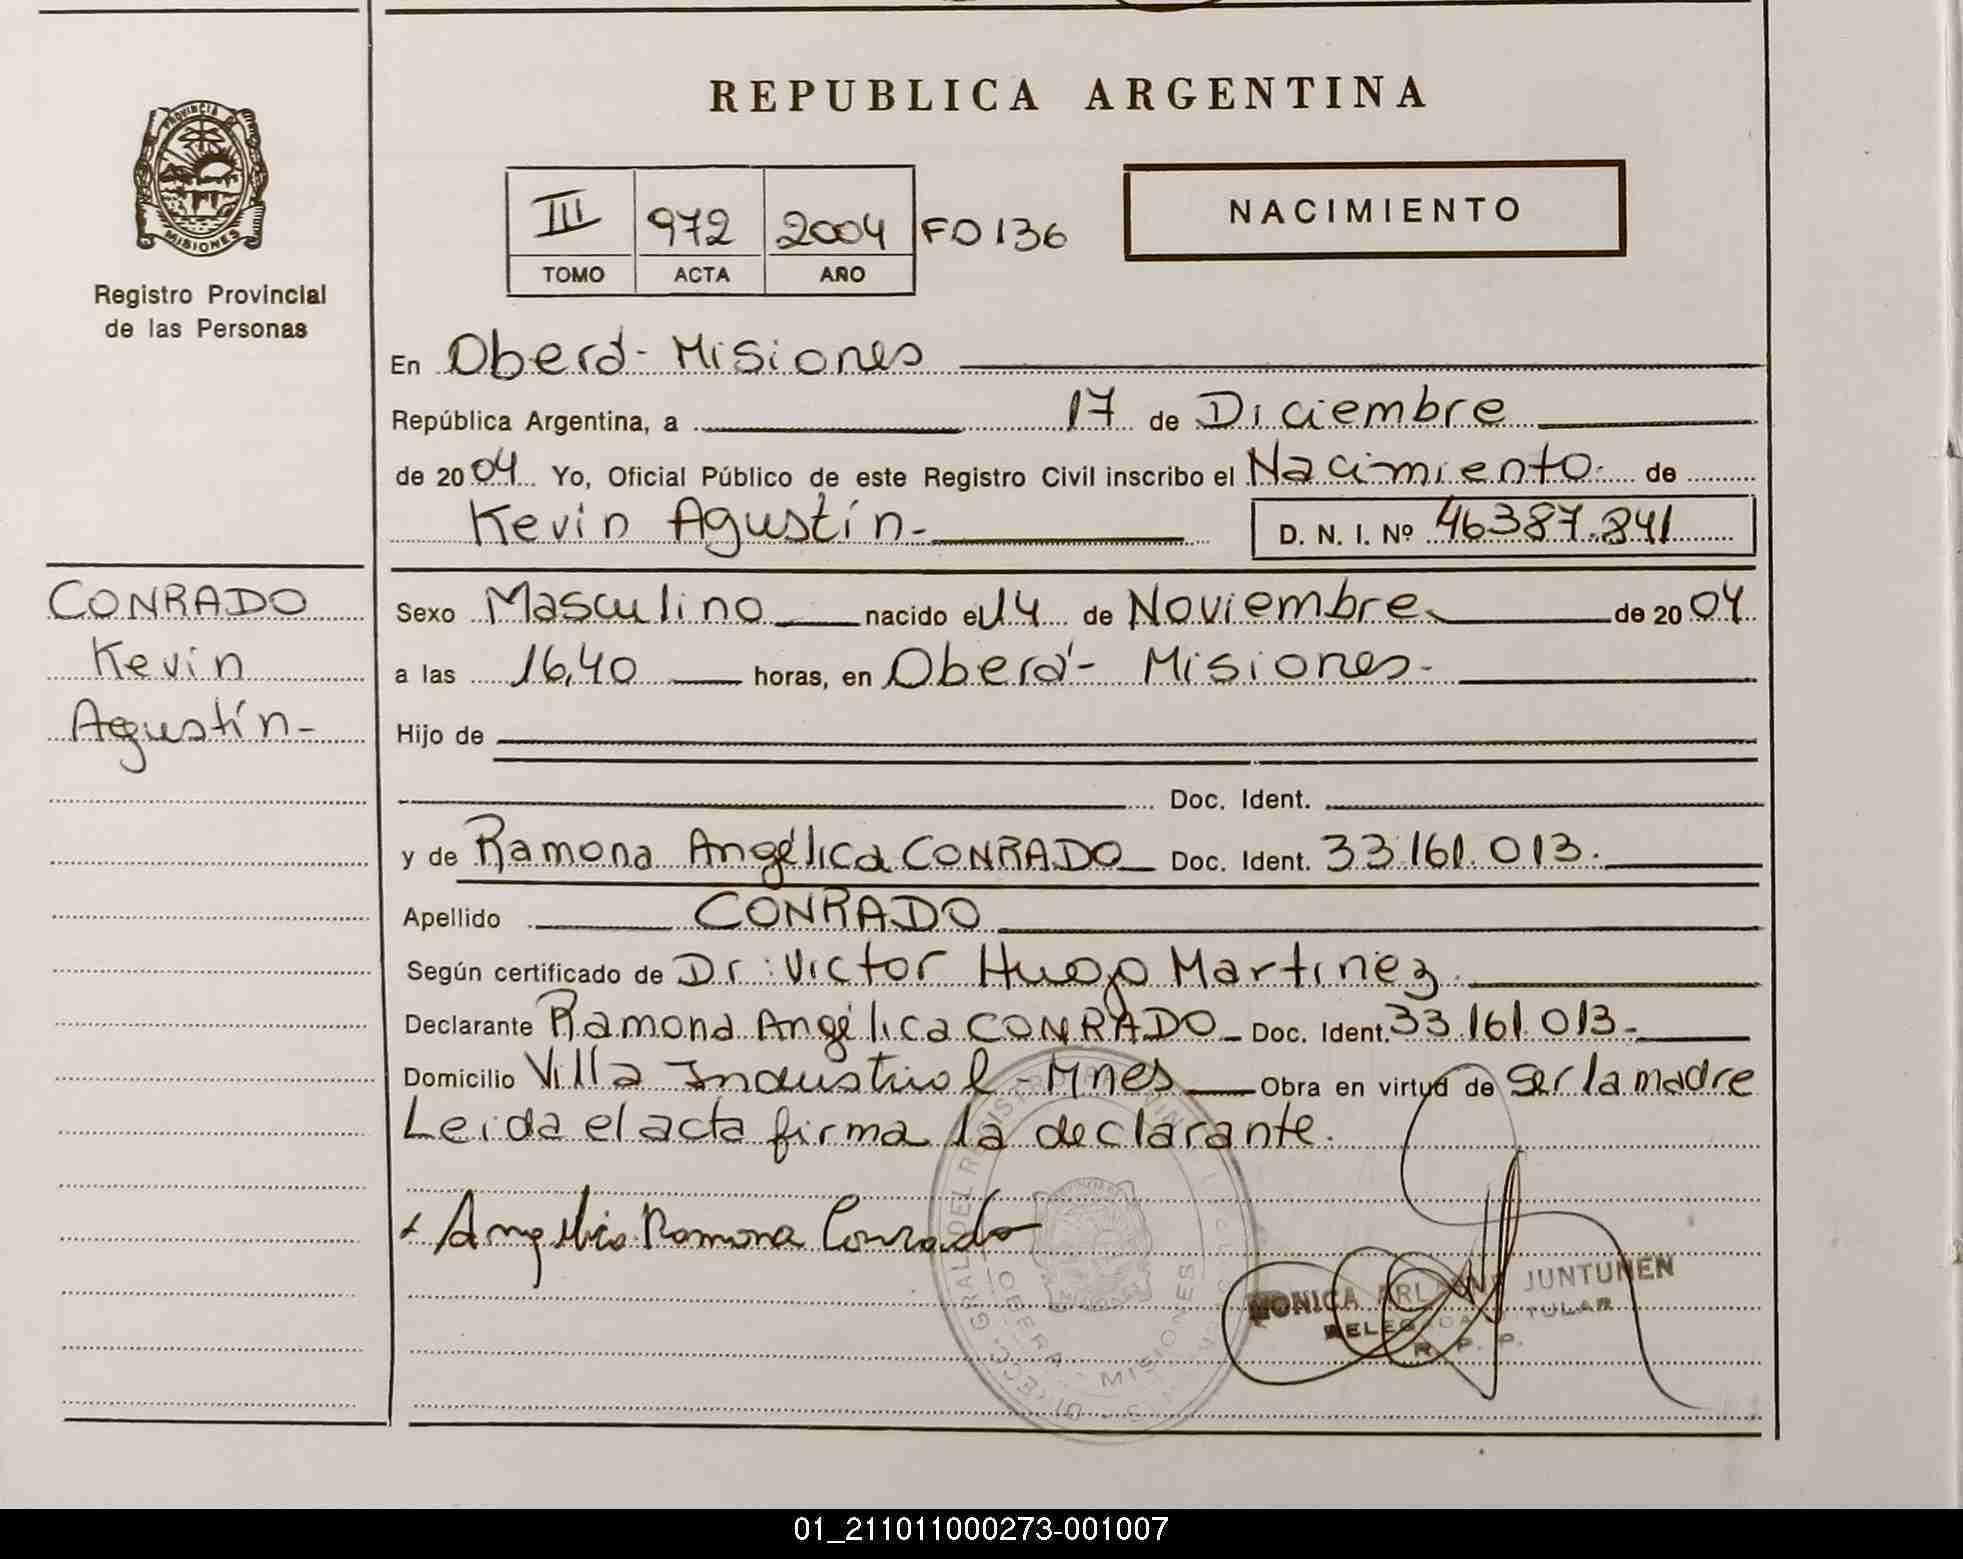 REPUBLICA ARGENTINA
PROVINCIA DE
MISIONES
Registro Provincial
de las Personas
III 972 2004 FO 136
TOMO ACTA AÑO
NACIMIENTO
En Oberá - Misiones
República Argentina, a 17 de Diciembre
de 20 04 Yo, Oficial Público de este Registro Civil inscribo el Nacimiento de
Kevin Agustín - D. N. I. Nº 46387.841
CONRADO
Kevin
Agustín -
Sexo Masculino nacido el 14 de Noviembre de 20 04
a las 16,40 horas, en Oberá - Misiones -
Hijo de
Doc. Ident.
y de Ramona Angélica CONRADO Doc. Ident. 33.161.013.
Apellido CONRADO
Según certificado de Dr: Victor Hugo Martinez
Declarante Ramona Angélica CONRADO - Doc. Ident. 33.161.013 -
Domicilio Villa Industrial - Mnes Obra en virtud de ser la madre
Leida el acta firma la declarante.
x Angelica Ramona Conrado
OBERA MISIONES
MONICA JUNTUNEN
DELEGADA TITULAR
R. P. P.
01_211011000273-001007